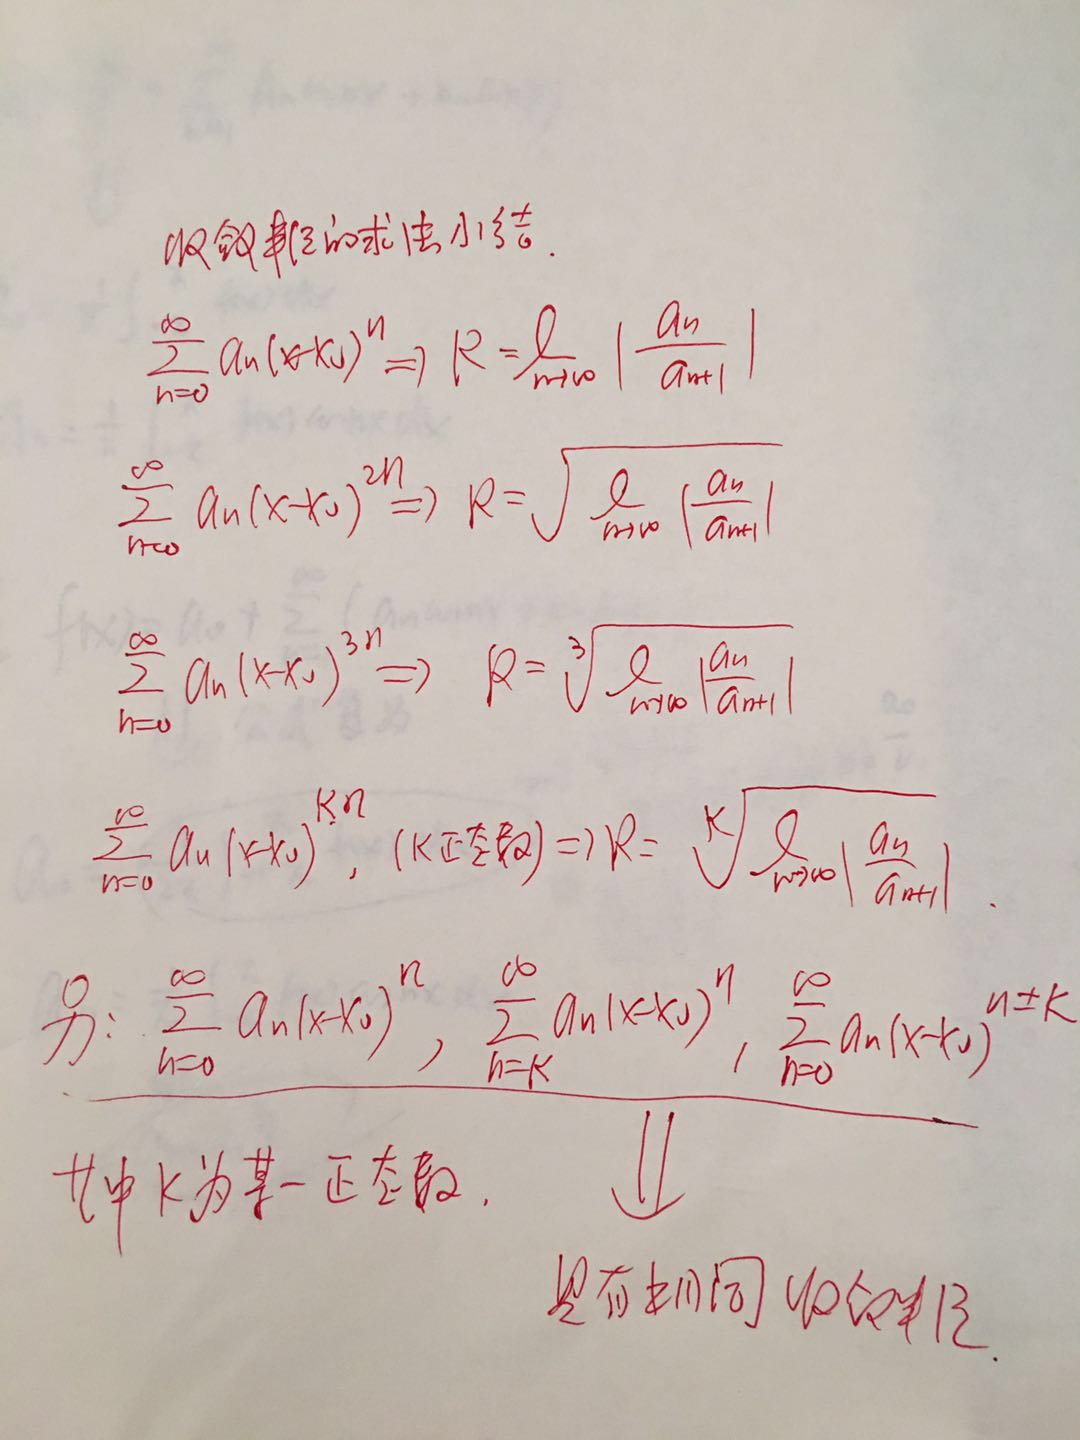 收敛半径的求法小结.
∑_{n=0}^{∞} a_n(x-x_0)^n ⇒ R = l_{n→∞} |a_n/a_{n+1}|
∑_{n=0}^{∞} a_n(x-x_0)^{2n} ⇒ R = √(l_{n→∞} |a_n/a_{n+1}|)
∑_{n=0}^{∞} a_n(x-x_0)^{3n} ⇒ R = ∛(l_{n→∞} |a_n/a_{n+1}|)
∑_{n=0}^{∞} a_n(x-x_0)^{Kn}, (K正整数) ⇒ R = ᴷ√(l_{n→∞} |a_n/a_{n+1}|).
另: ∑_{n=0}^{∞} a_n(x-x_0)^n, ∑_{n=K}^{∞} a_n(x-x_0)^n, ∑_{n=0}^{∞} a_n(x-x_0)^{n±K}
⇓
其中K为某一正整数.
具有相同收敛半径.